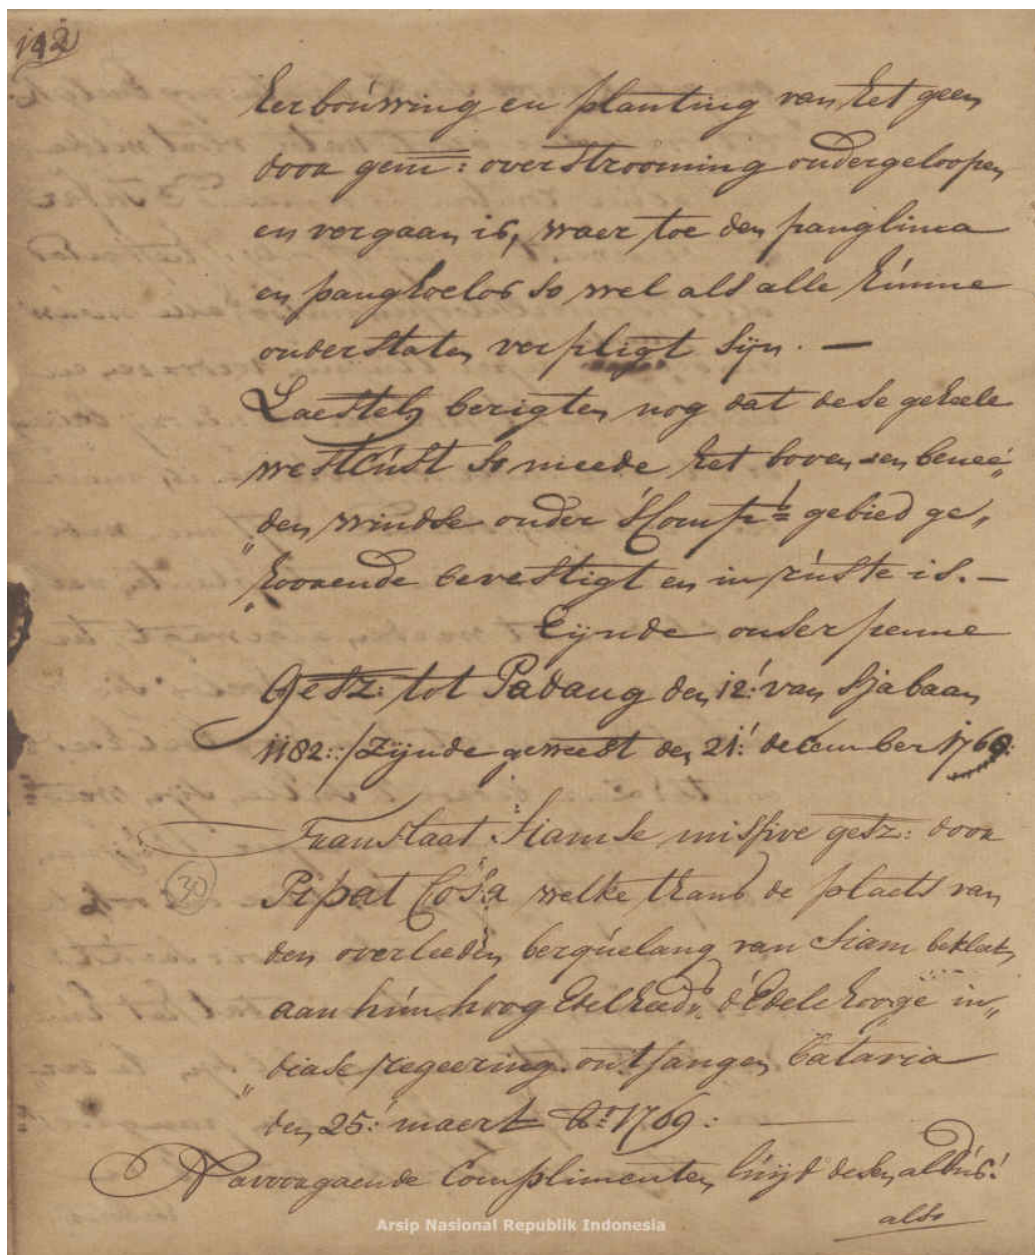 142
herbouwing en planting van het geen
door gem: overstrooming ondergeloopen
en vergaan is, waer toe den panglima
en panghoelos so wel als alle hunne
onderstaten verpligt sijn. —
Laestelh berigten nog dat dese geheele
westcúst so meede het boven en benee„
„den windse onder 'sComps gebied ge„
„hoorende bevestigt en in rúste is. —
Eijnde onser penne
Gesz: tot Padang den 12: van Sjabaan
1182:/ Zijnde geweest den 21: december 1768:
Translaat Siamse missive gesz: door
30
Pipat Cosa welke thans de plaets van
den overleeden berquelang van Siam bekleet,
aan hun hoog Edelheeds, d'Edele hooge in„
„diase regeering. ontfangen Batavia
den 25: maert Ao: 1769: —
Na voorgaende Complimenten, luijd desen aldús:
also
Arsip Nasional Republik Indonesia